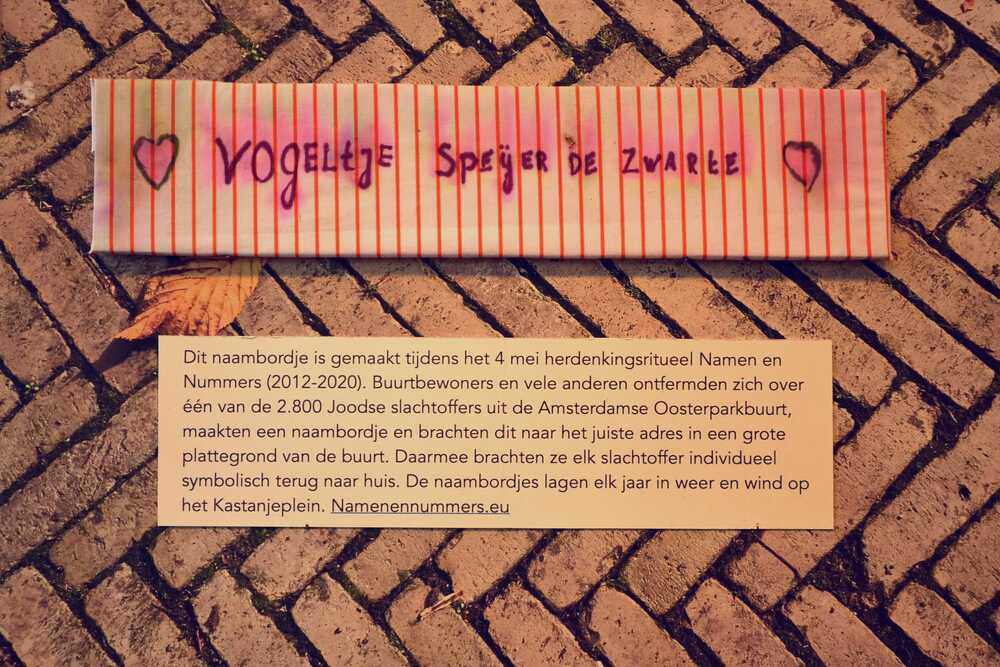 Vogeltje Speÿer de Zwarte
Dit naambordje is gemaakt tijdens het 4 mei herdenkingsritueel Namen en
Nummers (2012-2020). Buurtbewoners en vele anderen ontfermden zich over
één van de 2.800 Joodse slachtoffers uit de Amsterdamse Oosterparkbuurt,
maakten een naambordje en brachten dit naar het juiste adres in een grote
plattegrond van de buurt. Daarmee brachten ze elk slachtoffer individueel
symbolisch terug naar huis. De naambordjes lagen elk jaar in weer en wind op
het Kastanjeplein. Namenennummers.eu